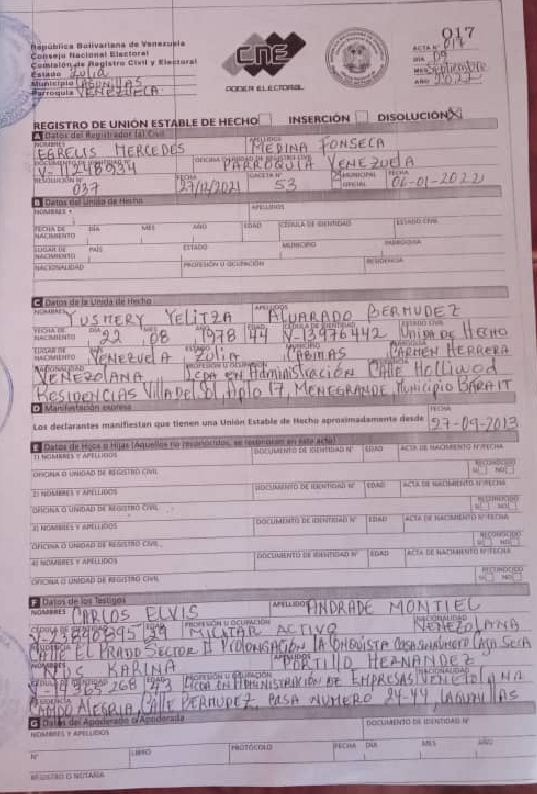 República Bolivariana de Venezuela
Consejo Nacional Electoral
Comisión de Registro Civil y Electoral
Estado Zulia
Municipio LAGUNILLAS
Parroquia VENEZUELA
CNE
PODER ELECTORAL
017
ACTA N° 017
DÍA 09
MES Septiembre
AÑO 2022
REGISTRO DE UNIÓN ESTABLE DE HECHO INSERCIÓN DISOLUCIÓN X
A Datos del Registrador (a) Civil
NOMBRES APELLIDOS
EGRELIS MERCEDES MEDINA FONSECA
DOCUMENTO DE IDENTIDAD N° OFICINA O UNIDAD DE REGISTRO CIVIL
V-11248934 PARROQUIA VENEZUELA
RESOLUCIÓN N° FECHA GACETA N° MUNICIPAL FECHA
037 27/12/2021 53 OFICIAL 06-01-2022
B Datos del Unido de Hecho
NOMBRES APELLIDOS
FECHA DE NACIMIENTO DÍA MES AÑO EDAD CÉDULA DE IDENTIDAD ESTADO CIVIL
LUGAR DE NACIMIENTO PAÍS ESTADO MUNICIPIO PARROQUIA
NACIONALIDAD PROFESIÓN U OCUPACIÓN RESIDENCIA
C Datos de la Unida de Hecho
NOMBRES APELLIDOS
YUSMERY YELITZA ALVARADO BERMUDEZ
FECHA DE NACIMIENTO DÍA MES AÑO EDAD CÉDULA DE IDENTIDAD ESTADO CIVIL
22 08 1978 44 V-13976442 UNIDA DE HECHO
LUGAR DE NACIMIENTO PAÍS ESTADO MUNICIPIO PARROQUIA
VENEZUELA ZULIA CABIMAS CARMEN HERRERA
NACIONALIDAD PROFESIÓN U OCUPACIÓN
VENEZOLANA LCDA EN Administración Calle Holliwod
RESIDENCIAS Villa Del Sol, Apto 17, MENEGRANDE, Municipio BARALT
D Manifestación expresa
FECHA
Los declarantes manifiestan que tienen una Unión Estable de Hecho aproximadamente desde 27-09-2013
E Datos de Hijos o Hijas (Aquellos no reconocidos, se reconocen en este acto)
1) NOMBRES Y APELLIDOS DOCUMENTO DE IDENTIDAD N° EDAD ACTA DE NACIMIENTO N°/FECHA
OFICINA O UNIDAD DE REGISTRO CIVIL RECONOCIDO SI NO
2) NOMBRES Y APELLIDOS DOCUMENTO DE IDENTIDAD N° EDAD ACTA DE NACIMIENTO N°/FECHA
OFICINA O UNIDAD DE REGISTRO CIVIL RECONOCIDO SI NO
3) NOMBRES Y APELLIDOS DOCUMENTO DE IDENTIDAD N° EDAD ACTA DE NACIMIENTO N°/FECHA
OFICINA O UNIDAD DE REGISTRO CIVIL RECONOCIDO SI NO
4) NOMBRES Y APELLIDOS DOCUMENTO DE IDENTIDAD N° EDAD ACTA DE NACIMIENTO N°/FECHA
OFICINA O UNIDAD DE REGISTRO CIVIL RECONOCIDO SI NO
F Datos de los Testigos
NOMBRES APELLIDOS
CARLOS ELVIS ANDRADE MONTIEL
CÉDULA DE IDENTIDAD EDAD PROFESIÓN U OCUPACIÓN NACIONALIDAD
29 MILITAR ACTIVO VENEZOLANA
RESIDENCIA
CALLE EL PRADO SECTOR II PROLONGACIÓN LA CONQUISTA CASA
NOMBRES APELLIDOS
KARINA PORTILLO HERNANDEZ
CÉDULA DE IDENTIDAD EDAD PROFESIÓN U OCUPACIÓN NACIONALIDAD
43 LCDA EN ADMINISTRACIÓN DE EMPRESAS VENEZOLANA
RESIDENCIA
CAMPO ALEGRIA, Calle BERMUDEZ, CASA NUMERO 24-44, LAGUNILLAS
G Datos del Apoderado o Apoderada
NOMBRES Y APELLIDOS DOCUMENTO DE IDENTIDAD N°
N° LIBRO PROTOCOLO FECHA DÍA MES AÑO
REGISTRO O NOTARÍA